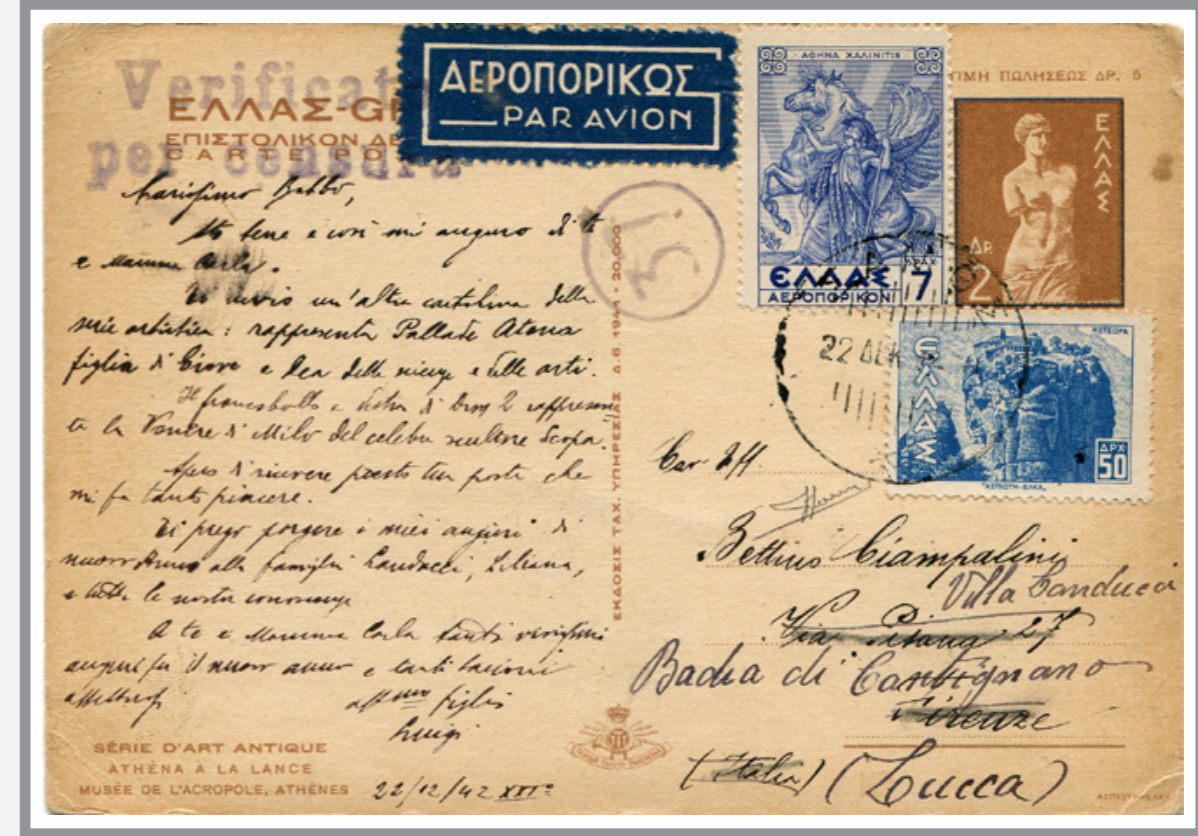 Verificat
per censura
ΕΛΛΑΣ-GR
ΕΠΙΣΤΟΛΙΚΟΝ ΔΕ
CARTE PO
ΑΕΡΟΠΟΡΙΚΩΣ
PAR AVION
ΑΘΗΝΑ ΧΑΛΙΝΙΤΙΣ
ΕΛΛΑΣ
ΑΕΡΟΠΟΡΙΚΟΝ
ΔΡΑΧ
7
ΤΙΜΗ ΠΩΛΗΣΕΩΣ ΔΡ. 5
ΕΛΛΑΣ
ΔΡ.
2
31.
22 ΔΕΚ
ΜΕΤΕΩΡΑ
ΕΛΛΑΣ
ΔΡΧ
50
ΑΣΠΙΩΤΗ-ΕΛΚΑ
Carissimo Babbo,
Sto bene e così mi auguro di te
e Mamma Carla.
Ti invio un'altra cartolina della
serie artistica: rappresenta Pallade Atena
figlia di Giove e Dea delle scienze e delle arti.
Il francobollo a destra di Drm 2 rappresen
ta la Venere di Milo del celebre scultore Scopa.
Spero di ricevere presto tua posta che
mi fa tanto piacere.
Ti prego porgere i miei auguri di
nuovo Anno alla famiglia Landucci, Liliana,
e tutte le nostre conoscenze
A te e Mamma Carla tanti vivissimi
auguri per il nuovo anno e tanti bacioni
aff.mo figlio
Luigi
22/12/42 XXI°
ΕΚΔΟΣΙΣ ΤΑΧ. ΥΠΗΡΕΣΙΑΣ Δ.6. 1941 - 20.000
Cav. Uff.
Bettino Ciampalini
Villa Landucci
Via Pisana 27
Badia di Cantignano
Firenze
(Italia) (Lucca)
SÉRIE D'ART ANTIQUE
ATHÉNA À LA LANCE
MUSÉE DE L'ACROPOLE, ATHÈNES